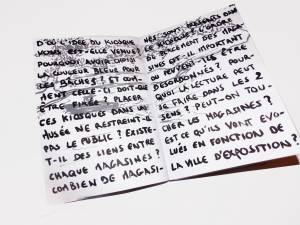 D'OÙ L'IDÉE DU KIOSQUE
VOUS EST-ELLE VENUE?
POURQUOI AVOIR CHOISI
LA COULEUR BLEUE POUR
LES BÂCHES? ET COM-
MENT CELLE-CI DOIT-ELLE
ÊTRE FIXÉE? PLACER
CES KIOSQUES DANS UN
MUSÉE NE RESTREINT-IL
PAS LE PUBLIC? EXISTE-
T-IL DES LIENS ENTRE
CHAQUE MAGASINES?
COMBIEN DE MAGASI-
NES SONT
KIOSQUES? L'ORDRE
DES MAGA-
SINES EST-IL IMPORTANT
OU PEUVENT-ILS ÊTRE
DÉSORDONNÉS? POUR-
QUOI LA LECTURE PEUT
SE FAIRE DANS 2
SENS? PEUT-ON TOU-
CHER LES MAGASINES?
EST CE QU'ILS VONT ÉVO-
LUÉS EN FONCTION DE
LA VILLE D'EXPOSITION?